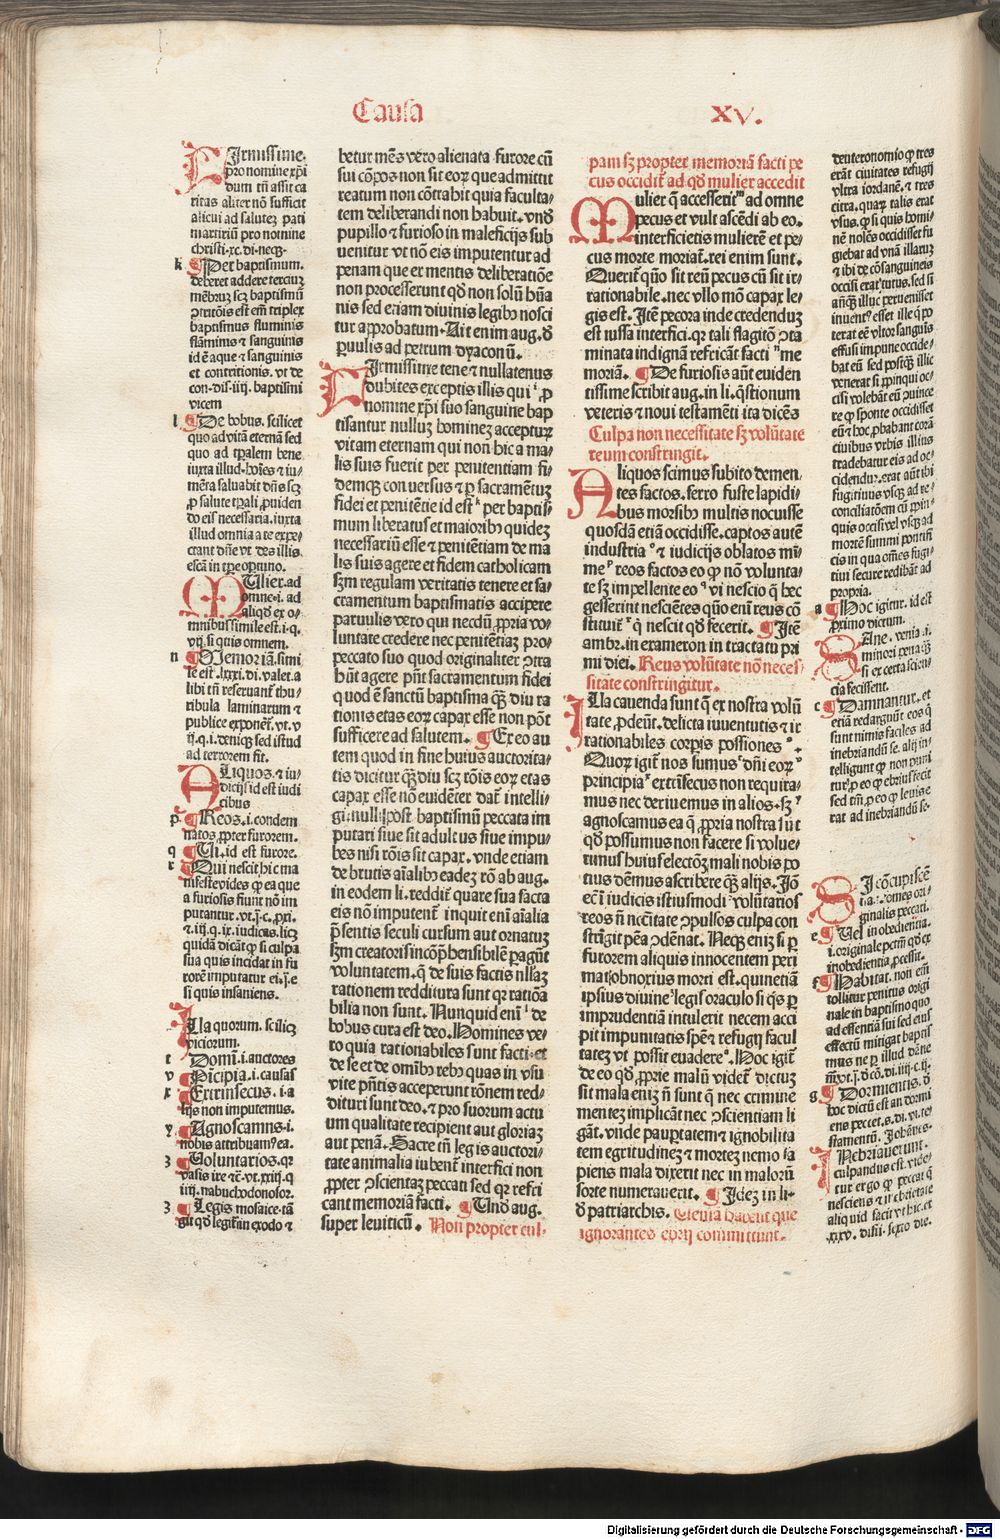 Causa
XV.
Firmissime.
pro nomine xp̄i
dum tn̄ assit ca
ritas aliter nō sufficit
alicui ad salutez pati
martiriū pro nomine
christi .xc. di. neqz.
k ¶ Per baptismum.
deberet addere terciuz
mēbruz scz baptismū
ɔtritōis est em̄ triplex
baptismus fluminis
flāminus ⁊ sanguinis
id ē aque ⁊ sanguinis
et contritionis. vt de
con. dis. iiij. baptismi
vicem
l ¶ De bobus. scilicet
quo ad vitā eternā sed
quo ad tp̄alem bene
iuxta illud. hoīes ⁊ iu⸗
mēta saluabit dn̄s scz
ꝓ salute tp̄ali ꝓuiden
do eis necessaria. iuxta
illud omnia a te expe⸗
ctant dn̄e vt des illis
escā in tp̄e optuno.
Mulier. ad
omne. i. ad
aliqd̄ ex o⸗
mnibus simile est. i. q.
vij. si quis omnem.
n ¶ Memoriā. simi
le est .lxxi. di. valet. a
libi tn̄ reseruant̄ thu⸗
ribula laminarum ⁊
publice exponēt̄. vt. v
ij. q. i. deniqz sed istud
ad terrorem fit.
Aliquos. ⁊ iu⸗
dicijs id est iudi
cibus
p ¶ Reos. i. condem
natos ꝓpter furorem.
q ¶ Vi. id est furore.
r ¶ Qui nescit hic ma
nifeste vides ꝙ ea que
a furiosis fiunt nō im
putantur. vt. j. c. ꝓxi.
⁊ .iij. q. ix. iudicas. licz
quidā dicāt ꝙ si culpa
sua quis incidat in fu
rorē imputatur ei. j. e
si quis insaniens.
Illa quorum. scilicz
viciorum.
t Domī. i. auctores
v ¶ Pīcipia. i. causas
x ¶ Extrinsecus. i. a
lijs non imputemus.
y ¶ Agnoscamus. i.
nobis attribuam⁹ ea.
z ¶ Voluntarios. qr
vasis ire ⁊ē. vt. xxiij. q
iiij. nabuchodonosor.
z ¶ Legis mosaice. tā
git qd̄ legit̄ in exodo ⁊
betur mēs vero alienata furore cū
sui cōpos non sit eorz que admittit
reatum non cōtrahit quia faculta⸗
tem deliberandi non habuit. vnd̄
pupillo ⁊ furioso in maleficijs sub
uenitur vt nō eis imputentur ad
penam que ex mentis deliberatiōe
non processerunt qd̄ non solū hūa
nis sed etiam diuinis legib⁹ nosci
tur approbatum. Ait enim aug. d̄
ꝑuulis ad petrum dyaconū.
Firmissime tene ⁊ nullatenus
dubites exceptis illis qui ꝓ
nomine xp̄i suo sanguine bap
tisantur nulluz hominez accepturz
vitam eternam qui non hic a ma⸗
lis suis fuerit per penitentiam fi⸗
demqz conuersus ⁊ ꝑ sacramētuz
fidei et penitētie id est per baptis⸗
mum liberatus et maiorib⁹ quidez
necessariū esse ⁊ penitētiam de ma
lis suis agere et fidem catholicam
sz̄m regulam veritatis tenere et sa⸗
cramentum baptismatis accipere
paruulis vero qui necdū ꝓpria vo⸗
luntate credere nec penitētiaz pro⸗
peccato suo quod originaliter ɔtra
hūt agere pn̄t sacramentum fidei
quod ē sanctū baptisma qz̄ diu ra
tionis etas eorz capax esse non pōt
sufficere ad salutem. ¶ Ex eo au
tem quod in fine huius auctorita⸗
tis dicitur qz̄diu scz rōis eorz etas
capax esse nō euidēter dat̄ intelli⸗
gi: nulli post baptismū peccata im
putari siue sit adultus siue impu⸗
bes nisi rōis sit capax. vnde etiam
de brutis aīalib⁹ eadez rō ab aug.
in eodem li. reddit̄ quare sua facta
eis nō imputent̄ inquit enī aīalia
p̄sentis seculi cursum aut ornatuz
sz̄m creatoris incōp̄hensibilē ꝑagūt
voluntatem. q̄ de suis factis nllaz
rationem redditura sunt qr ratiōa
bilia non sunt. Nunquid enī de
bobus cura est deo. Homines ve⸗
ro quia rationabiles sunt facti: et
de se et de omīb⁹ reb⁹ quas in vsu
vite pn̄tis acceperunt rōnem red⸗
dituri sunt deo. ⁊ pro suorum actu
um qualitate recipient aut gloriaz
aut penā. Sacre tn̄ legis auctori⸗
tate animalia iubent̄ interfici non
ꝓpter ɔscientaz peccati sed qr refri
cant memoriā facti. ¶ Vnd̄ aug.
super leuiticū. Non propter cul⸗
pam sz propter memoriā facti pe
cus occidit̄ ad qd̄ mulier accedit
Mulier q̄ accesserit ad omne
pecus et vult ascēdi ab eo.
interficietis mulierē et pe⸗
cus morte moriat̄. rei enim sunt.
Querit̄ qūo sit reū pecus cū sit ir⸗
rationabile. nec vllo mō capax le⸗
gis est. Itē pecora inde credenduz
est iussa interfici. qr tali flagitō ɔta
minata indignā refricāt facti me
moriā. ¶ De furiosis aūt euiden
tissime scribit aug. in li. q̄stionum
veteris ⁊ noui testamēti ita dicēs
Culpa non necessitate sz volūtate
reum constringit.
Aliquos scimus subito demen⸗
tes factos. ferro fuste lapidi⸗
bus morsib⁹ multis nocuisse
quosdā etiā occidisse. captos autē
industria ⁊ iudicijs oblatos mī⸗
me reos factos eo ꝙ nō volunta⸗
te sz impellente eo vi nescio q̄ hec
gesserint nesciētes qūo enī reus cō
stituit̄ q̄ nescit qd̄ fecerit. ¶ Itē
ambr. in exameron in tractatu pri
mi diei. Reus volūtate nō neces⸗
sitate constringitur.
Illa cauenda sunt q̄ ex nostra volū
tate ꝓdeūt. delicta iuuentutis ⁊ ir
rationabiles corpis possiones.
Quorz igit̄ nos sumus dn̄i eorz
principia extrīsecus non requira⸗
mus nec deriuemus in alios. sz
agnoscamus ea q̄ ꝓpria nostra sūt
qd̄ possumus non facere si volue⸗
rimus huiu selectōz mali nobis po
tius dēmus ascribere qz̄ alijs. Iō
ec̄ i iudicis istiusmodi volūtarios
reos n̄ ncc̄itate ɔpulsos culpa con
strīgit pēa ɔdēnat. Neqz eniz si ꝑ
furorem aliquis innocentem peri
mat obnoxius morti est. quinetiā
ipsius diuine legis oraculo si q̄s ꝑ
imprudentiā intulerit necem acci
pit impunitatis spē ⁊ refugij facul
tatez vt possit euadere. Hoc igit̄
de eo qd̄ ꝓprie malū videt̄ dictuz
sit mala eniz n̄ sunt q̄ nec crimine
mentez implicāt nec ɔscientiam li
gāt. vnde pauptatem ⁊ ignobilita
tem egritudinez ⁊ mortez nemo sa
piens mala dixerit nec in malorū
sorte numerauerit. ¶ Idez in li⸗
d̄ patriarchis. Veniā habent que
ignorantes ebrij committunt.
deuteronomio ꝙ tres
erāt ciuitates refugij
vltra iordanē. ⁊ tres
citra. quaꝝ talis erat
vsus. ꝙ si quis homi⸗
nē nolēs occidisset fu
giebat ad vnā illarum
⁊ ibi de cōsanguineis
occisi erat tutus. sed si
anq̄z illuc peruenisset
inuent⁹ esset ille q̄ po
terat eē vltor sanguis
effusi impune occide⸗
bat eū. sed postqz̄ illic
venerat si ꝓpinqui oc⸗
cisi volebāt eū ɔuince
re ꝙ sponte occidisset
eū ⁊ hoc ꝓbabant corā
ciuibus vrbis illius
tradebatur eis ad oc⸗
cidendum. erat aūt ibi
fugitiuus vsqz ad re⸗
conciliatōem cū ꝓpin⸗
quis occisi vel vsqz ad
mortē summi pontifi
cis in qua om̄es fugi⸗
tiui secure redibāt ad
propria.
a ¶ Hoc igitur. id est
ꝓximo dictum.
Sane. venia. i.
minori pena q̄z
si ex certa scien⸗
cia fecissent.
c ¶ Damnantur. et
etiā redarguūt eos q̄
sunt nimis faciles ad
inebriandū se. alij in⸗
telligunt ꝙ non puni
tur ꝓ eo ꝙ ebrius fecit
sed tm̄ ꝓ eo ꝙ leuiter se
rat ad inebriandū se.
Si cōcupiscē
tia. fomes ori⸗
ginalis peccati.
e ¶ Vel inobedientia.
i. originale pctm̄ qd̄ ex
inobedientia ꝓcessit.
f ¶ Habitat. non em̄
tollitur penitus origi
nale in baptismo quo
ad essentiā sui sed eius
effectū mitigat baptis
mus
g ¶ Dormientis. d̄
hoc dictū est an dormi
ens peccet. s. di. vi. te⸗
stamentū. Johānis.
Inebriauerunt.
culpandus est. vide⸗
tur ergo ꝙ peccat q̄
nesciens ⁊ in ebrietate
aliquid facit vt hic. et
.xxxv. dist. sexto die.
Digitalisierung gefördert durch die Deutsche Forschungsgemeinschaft - DFG